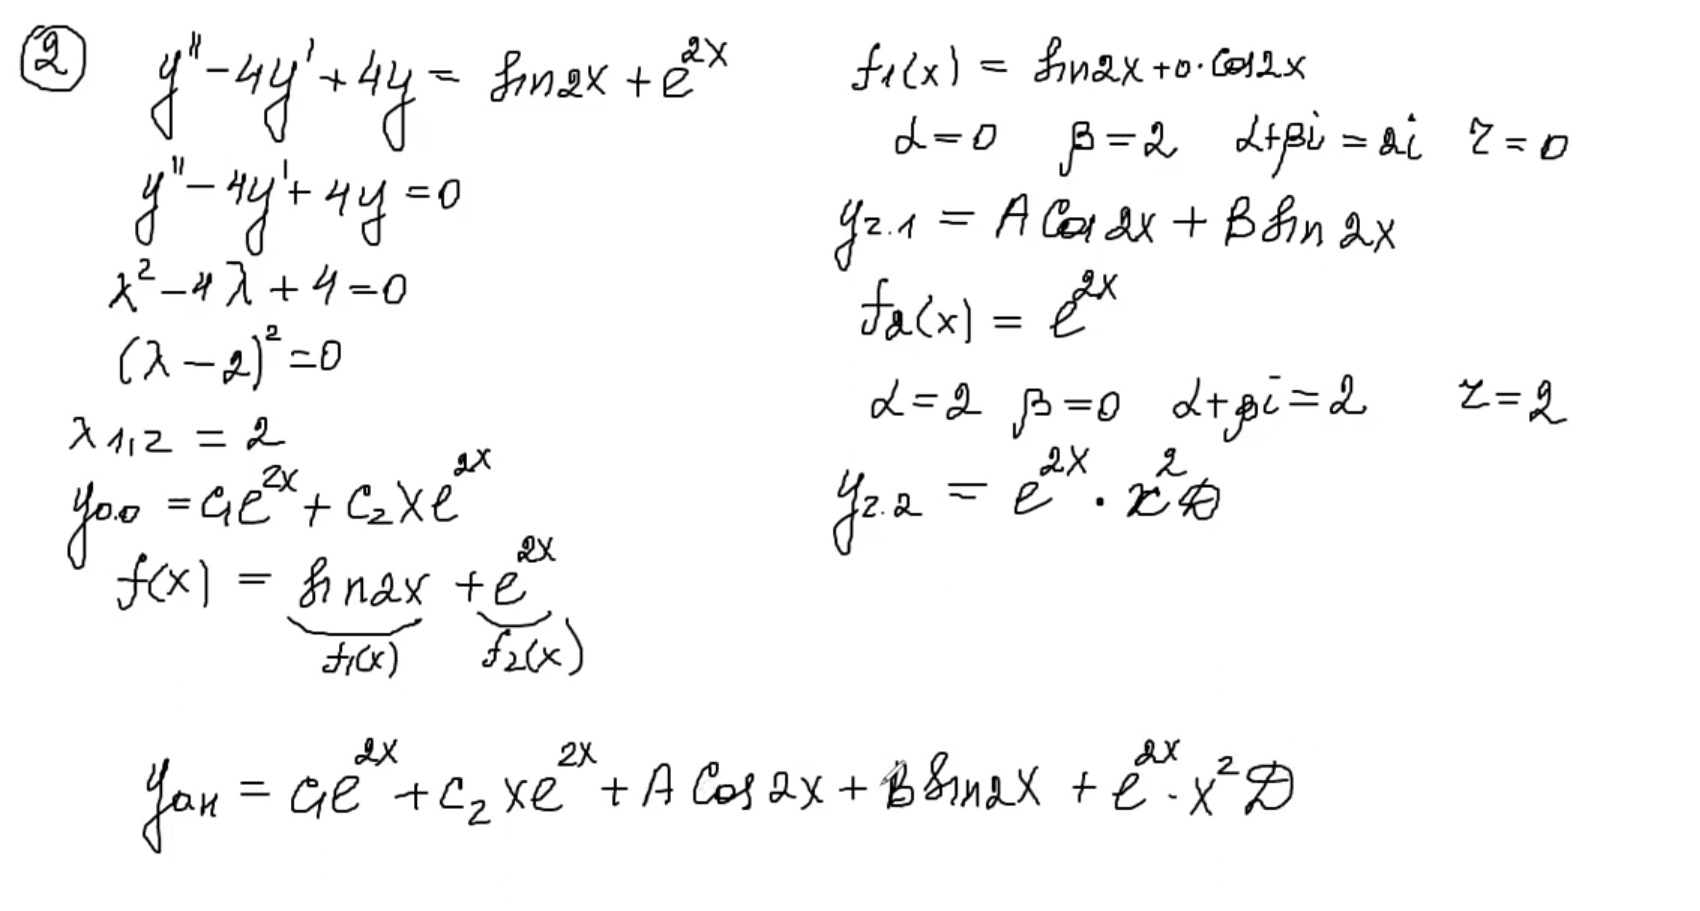 2
y'' - 4y' + 4y = sin2x + e^{2x}
y'' - 4y' + 4y = 0
λ^2 - 4λ + 4 = 0
(λ - 2)^2 = 0
λ1,2 = 2
y0.0 = C1e^{2x} + C2xe^{2x}
f(x) = sin2x + e^{2x}
f1(x) f2(x)
f1(x) = sin2x + 0·cos2x
α = 0 β = 2 α+βi = 2i r = 0
yr.1 = A cos 2x + B sin 2x
f2(x) = e^{2x}
α = 2 β = 0 α+βi = 2 r = 2
yr.2 = e^{2x} · x^2 D
yон = C1e^{2x} + C2xe^{2x} + A cos 2x + B sin2x + e^{2x} · x^2 D